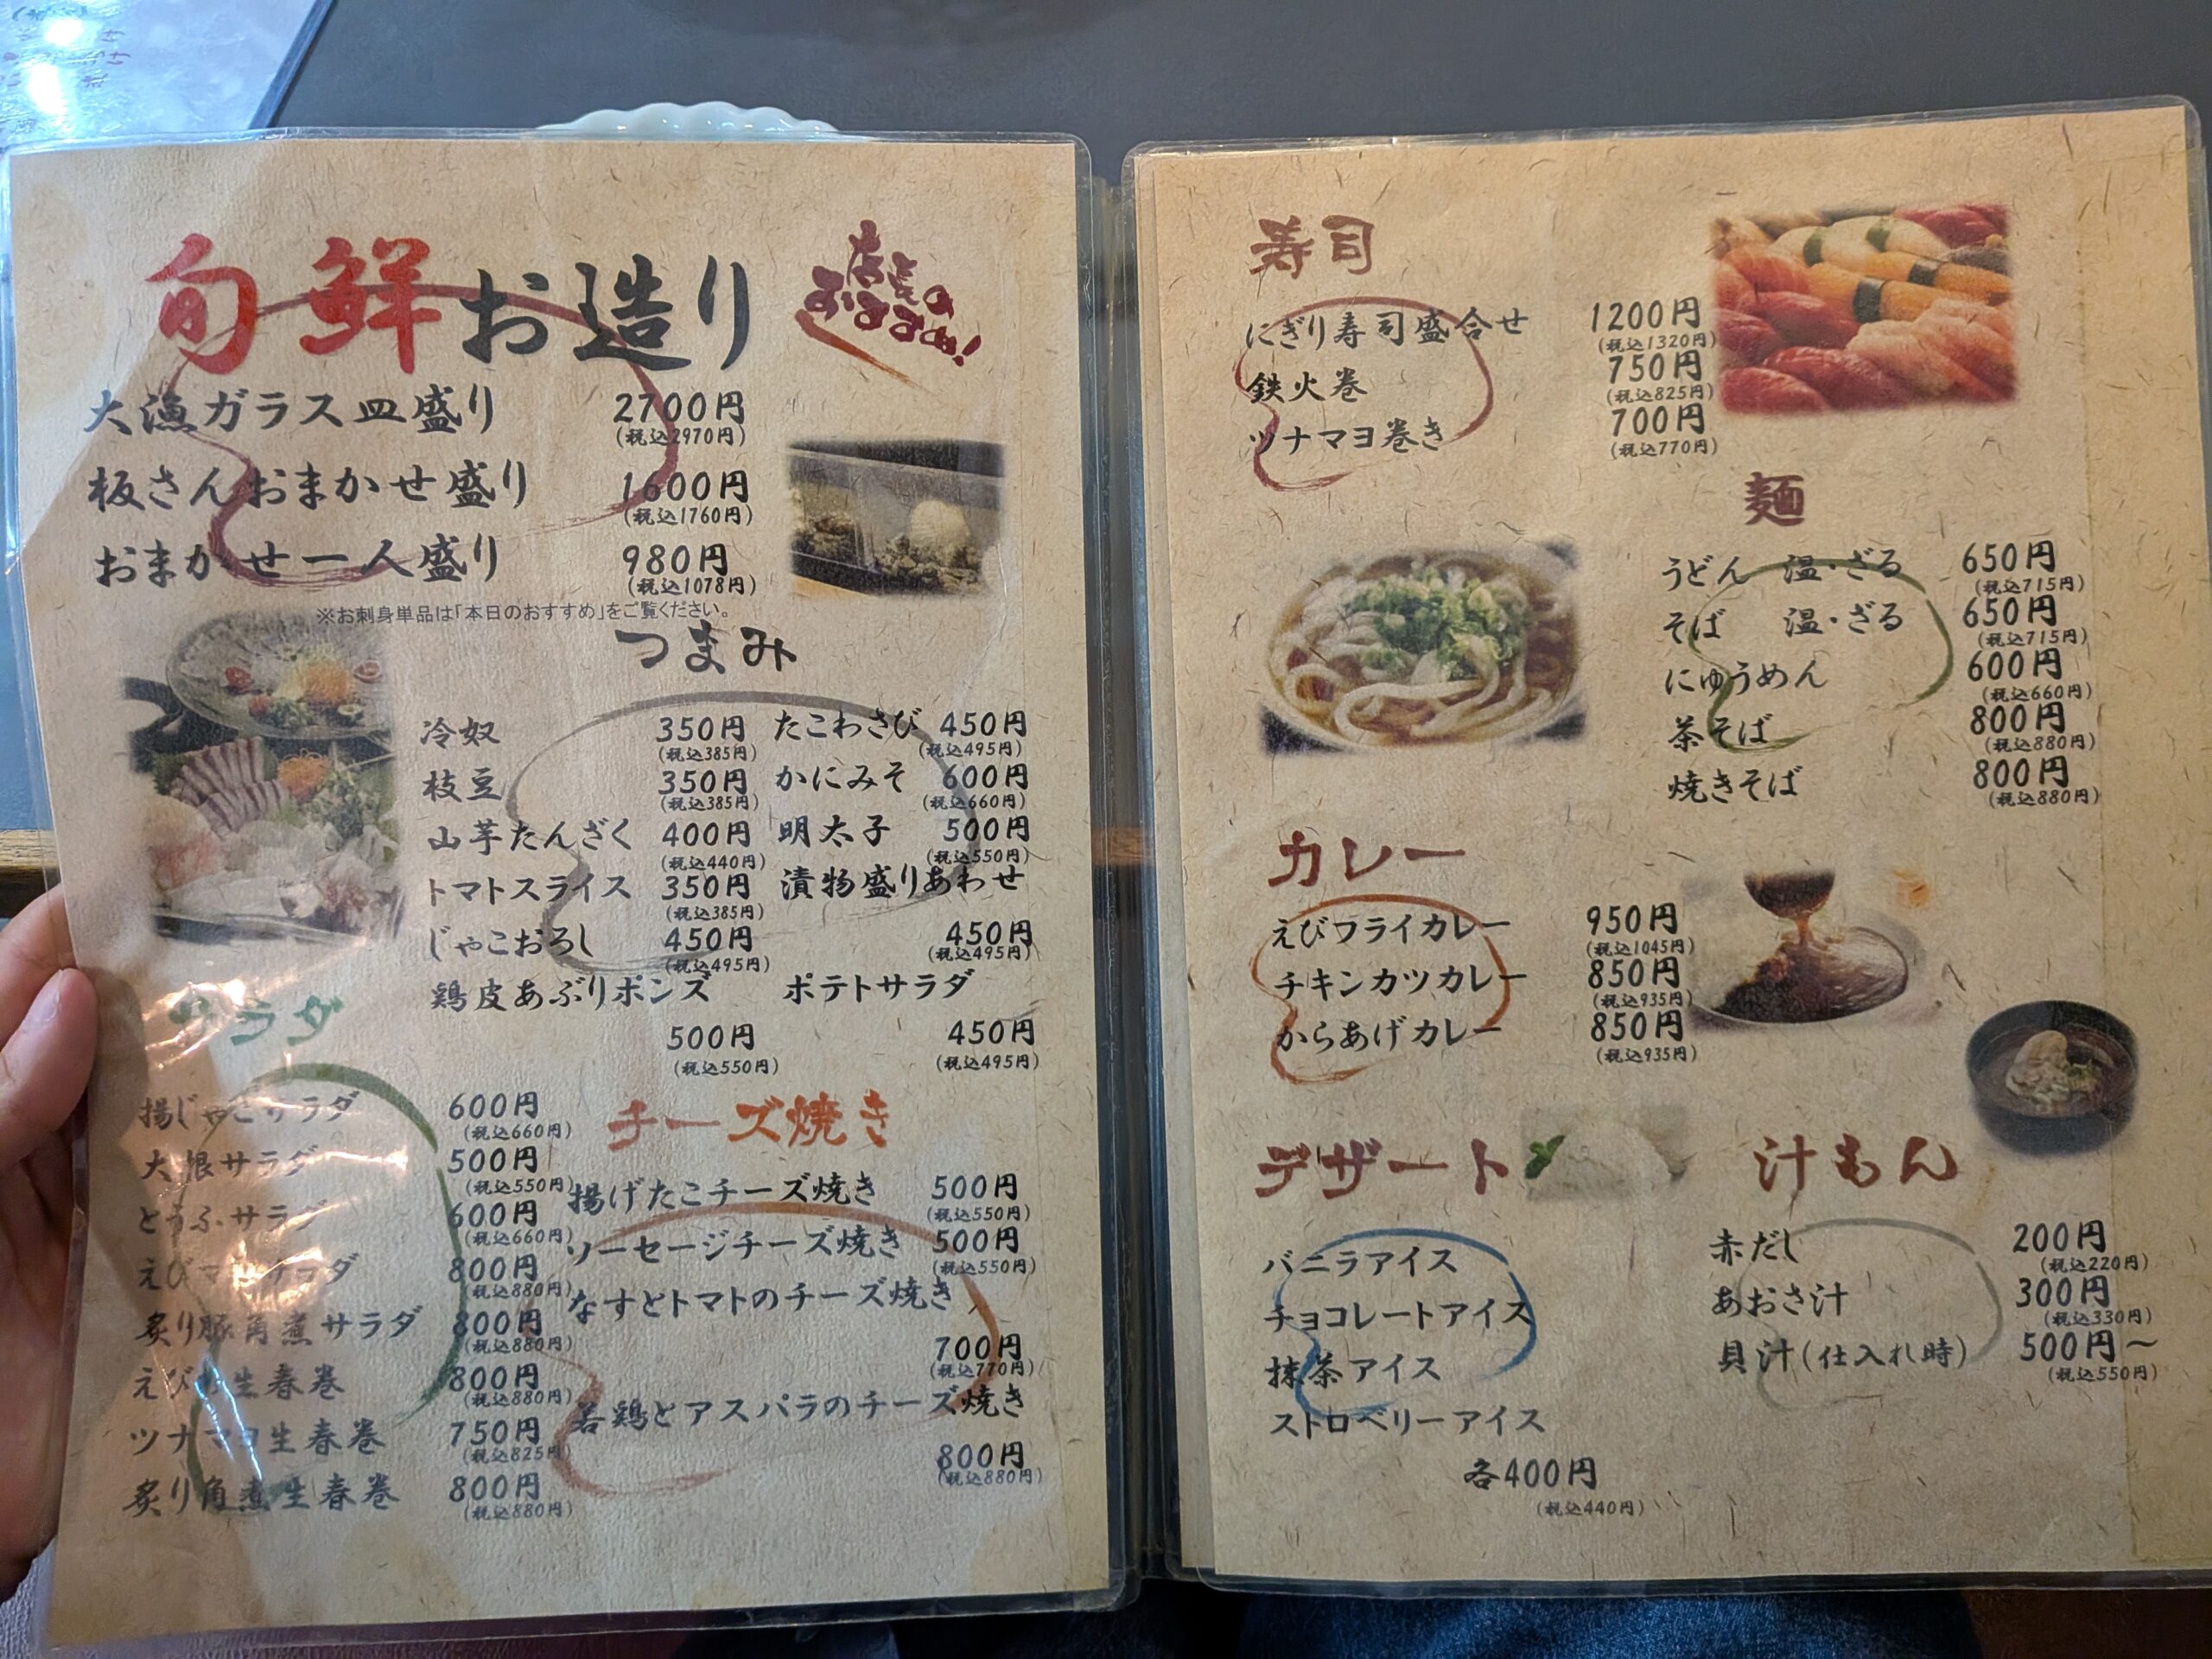 旬鮮お造り
店長のおすすめ!
大漁ガラス皿盛り 2700円
(税込2970円)
板さんおまかせ盛り 1600円
(税込1760円)
おまかせ一人盛り 980円
(税込1078円)
※お刺身単品は「本日のおすすめ」をご覧ください。
つまみ
冷奴 350円
(税込385円)
枝豆 350円
(税込385円)
山芋たんざく 400円
(税込440円)
トマトスライス 350円
(税込385円)
じゃこおろし 450円
(税込495円)
鶏皮あぶりポンズ
500円
(税込550円)
たこわさび 450円
(税込495円)
かにみそ 600円
(税込660円)
明太子 500円
(税込550円)
漬物盛りあわせ
450円
(税込495円)
ポテトサラダ
450円
(税込495円)
サラダ
揚じゃこサラダ 600円
(税込660円)
大根サラダ 500円
(税込550円)
とうふサラダ 600円
(税込660円)
えびマヨサラダ 800円
(税込880円)
炙り豚角煮サラダ 800円
(税込880円)
えび 生春巻 800円
(税込880円)
ツナマヨ生春巻 750円
(税込825円)
炙り角煮生春巻 800円
(税込880円)
チーズ焼き
揚げたこチーズ焼き 500円
(税込550円)
ソーセージチーズ焼き 500円
(税込550円)
なすとトマトのチーズ焼き
700円
(税込770円)
若鶏とアスパラのチーズ焼き
800円
(税込880円)
寿司
にぎり寿司盛合せ 1200円
(税込1320円)
鉄火巻 750円
(税込825円)
ツナマヨ巻き 700円
(税込770円)
麺
うどん 温・ざる 650円
(税込715円)
そば 温・ざる 650円
(税込715円)
にゅうめん 600円
(税込660円)
茶そば 800円
(税込880円)
焼きそば 800円
(税込880円)
カレー
えびフライカレー 950円
(税込1045円)
チキンカツカレー 850円
(税込935円)
からあげカレー 850円
(税込935円)
デザート
バニラアイス
チョコレートアイス
抹茶アイス
ストロベリーアイス
各400円
(税込440円)
汁もん
赤だし 200円
(税込220円)
あおさ汁 300円
(税込330円)
貝汁(仕入れ時) 500円～
(税込550円)